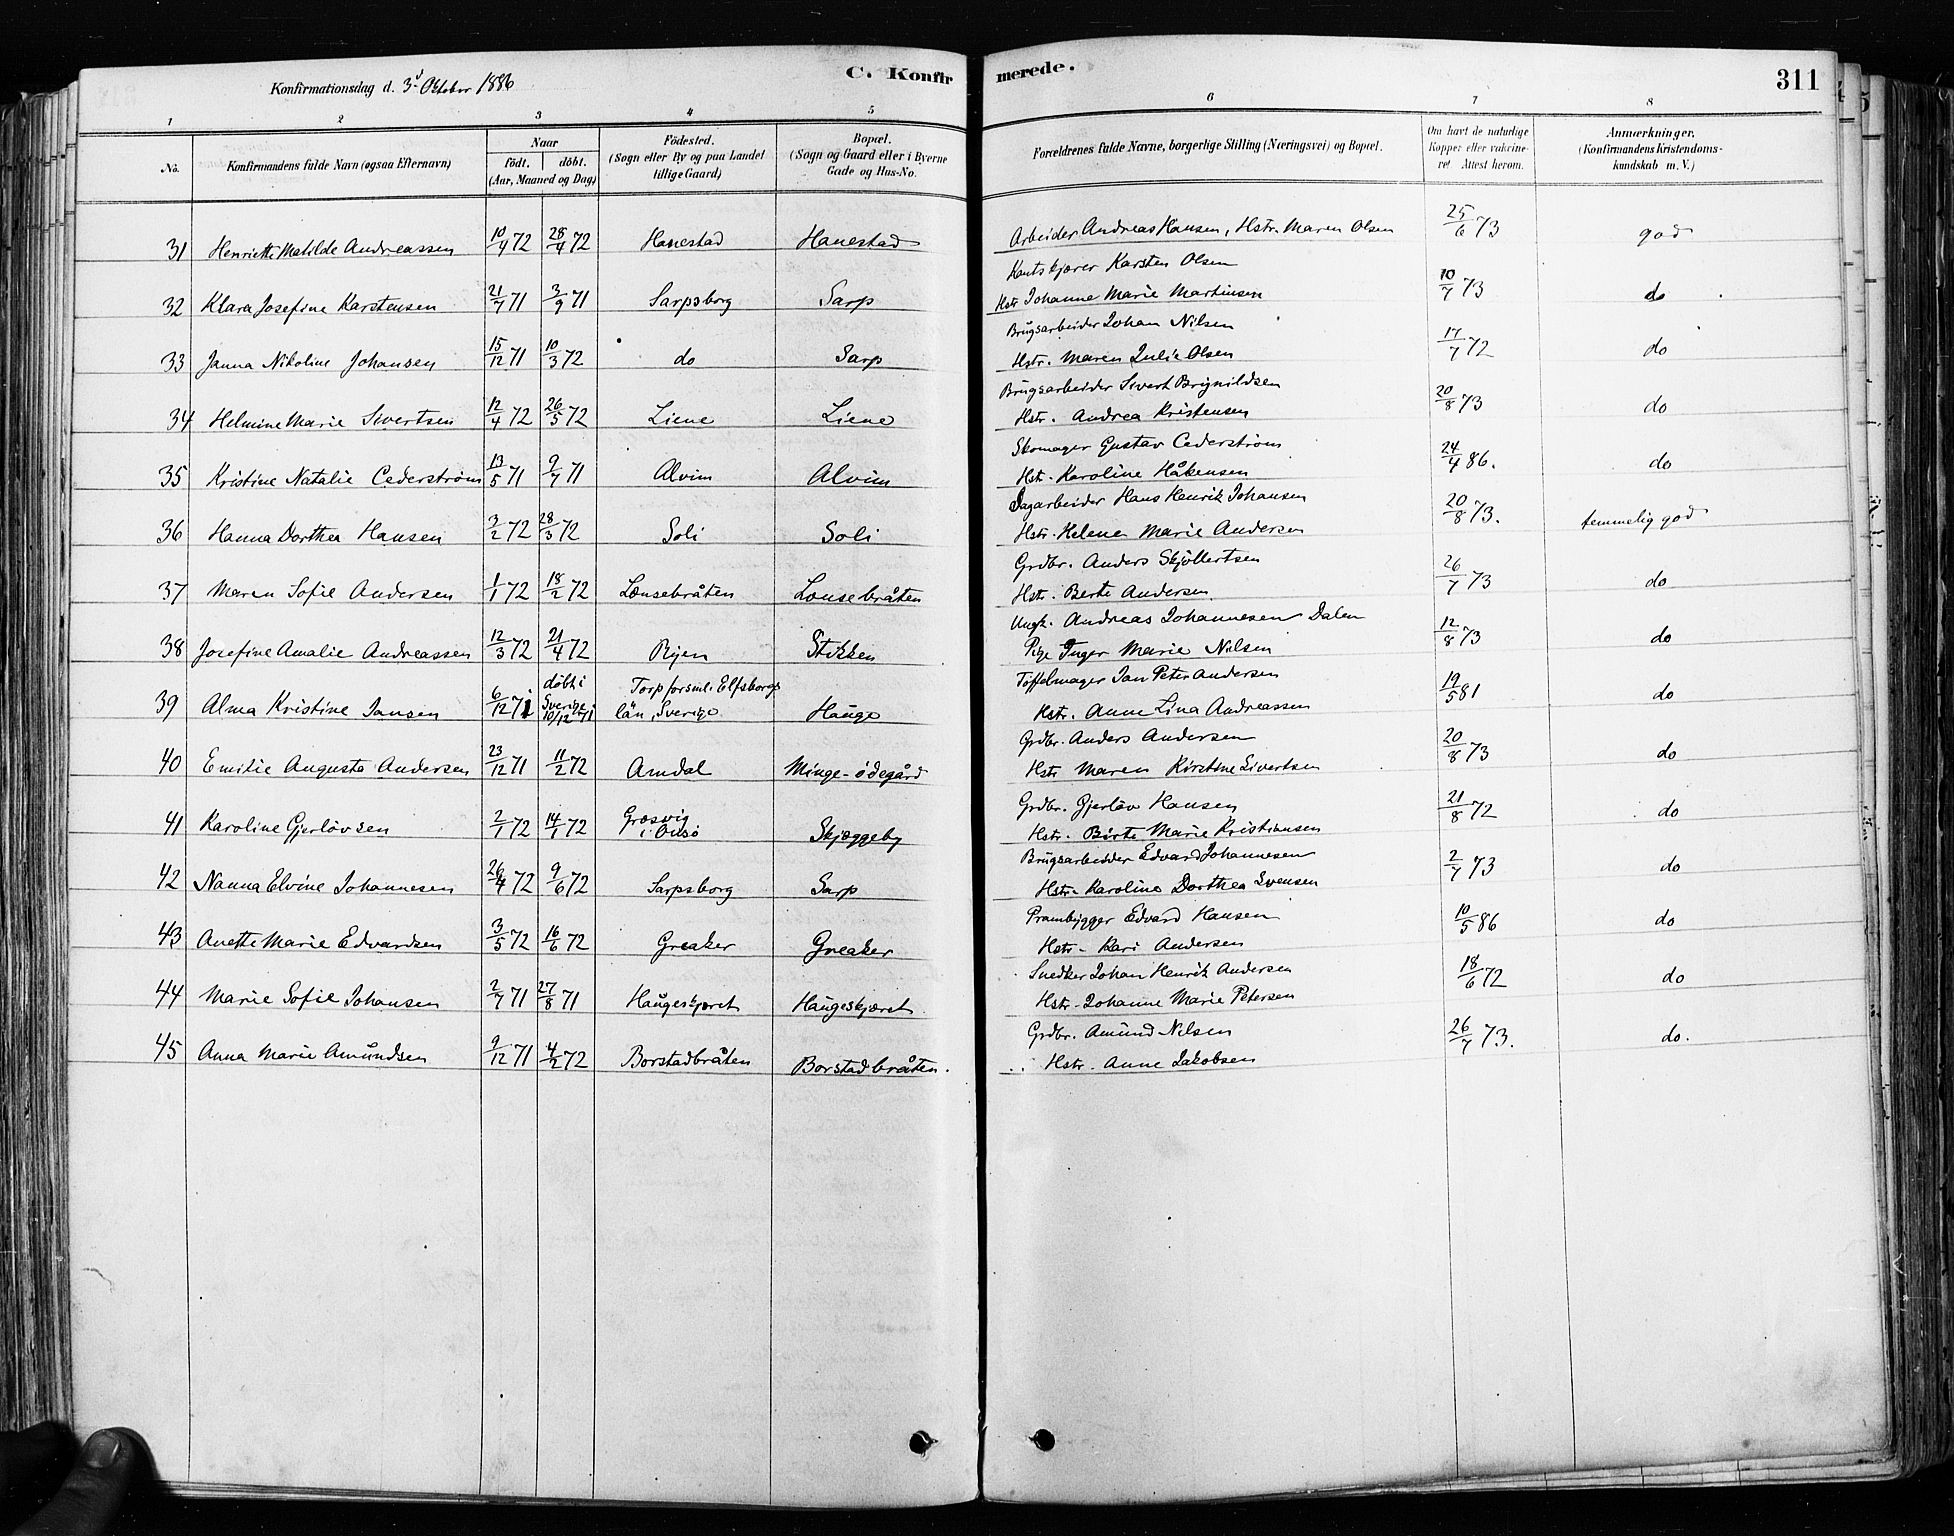 Konfirmationsdag d. 3d Oktober 1886
C. Konfirmerede.
311
1 2 3 4 5 6 7 8
No. Konfirmandens fulde Navn (ogsaa Efternavn) Naar født. døbt. (Aar, Maaned og Dag) Födested. (Sogn eller By og paa Landet tillige Gaard) Bopæl. (Sogn og Gaard eller i Byerne Gade og Hus-No. Forældrenes fulde Navne, borgerlige Stilling (Næringsvei) og Bopæl. Om havt de naturlige Kopper eller vakcineret. Attest herom. Anmærkninger. (Konfirmandens Kristendomskundskab m. V.)
31 Henriette Matilde Andreassen 10/4 72 28/4 72 Hanestad Hanestad Arbeider Andreas Hansen, Hstr. Maren Olsen 25/6 73 god
32 Klara Josefine Karstensen 21/7 71 3/9 71 Sarpsborg Sarp Kantskjærer Karsten Olsen
Hstr Johanne Marie Martinsen 10/7 73 do
33 Janna Nikoline Johansen 15/12 71 10/3 72 do Sarp Brugsarbeider Johan Nilsen
Hstr. Maren Julie Olsen 17/7 72 do
34 Helmine Marie Sivertsen 12/4 72 26/5 72 Liene Liene Brugsarbeider Sivert Brynildsen
Hstr. Andrea Kristensen 20/8 73 do
35 Kristine Natalie Cederström 13/5 71 9/7 71 Alvim Alvim Skomager Gustav Cederström
Hstr. Karoline Håkensen 24/4 86. do
36 Hanna Dorthea Hansen 3/2 72 28/3 72 Soli Soli Dagarbeider Hans Henrik Johansen
Hstr. Helene Marie Andersen 20/8 73. temmelig god
37 Maren Sofie Andersen 1/1 72 18/2 72 Lönsebråten Lonsebråten Grdbr. Anders Skjöllertsen
Hstr. Berte Andersen 26/7 73 do
38 Josefine Amalie Andreassen 12/3 72 21/4 72 Ryen Stikken Ungk. Andreas Johannesen Dalen
Pige Inger Marie Nilsen 12/8 73 do
39 Alma Kristine Jansen 6/12 71 døbt i Sverige 10/12 71 Torp forsml. Elfsborgs län, Sverige Hauge Töffelmager Jan Peter Andersen
Hstr. Anne Lina Andreassen 19/5 81 do
40 Emilie Augusta Andersen 23/12 71 11/2 72 Amdal Minge-ödegård Grdbr. Anders Andersen
Hstr Maren Kirstine Sivertsen 20/8 73 do
41 Karoline Gjerløvsen 2/1 72 14/1 72 Græsvig i Onsö Skjæggeby Grdbr. Gjerløv Hansen
Hstr. Birte Marie Kristiansen 21/8 72 do
42 Nanna Elvine Johannesen 26/4 72 9/6 72 Sarpsborg Sarp Brugsarbeider Edvard Johannesen
Hstr. Karoline Dorthea Svensen 2/7 73 do
43 Anette Marie Edvardsen 3/5 72 16/6 72 Greaker Greaker Prambygger Edvard Hansen
Hstr. Kari Andersen 10/5 86 do
44 Marie Sofie Johansen 2/7 71 27/8 71 Haugeskjæret Haugeskjæret Snedker Johan Henrik Andersen
Hstr. Johanne Marie Petersen 18/6 72 do
45 Anna Marie Amundsen 9/12 71 4/2 72 Borstadbråten Borstadbråten. Grdbr. Amund Nilsen
Hstr. Anne Jakobsen 26/7 73. do.